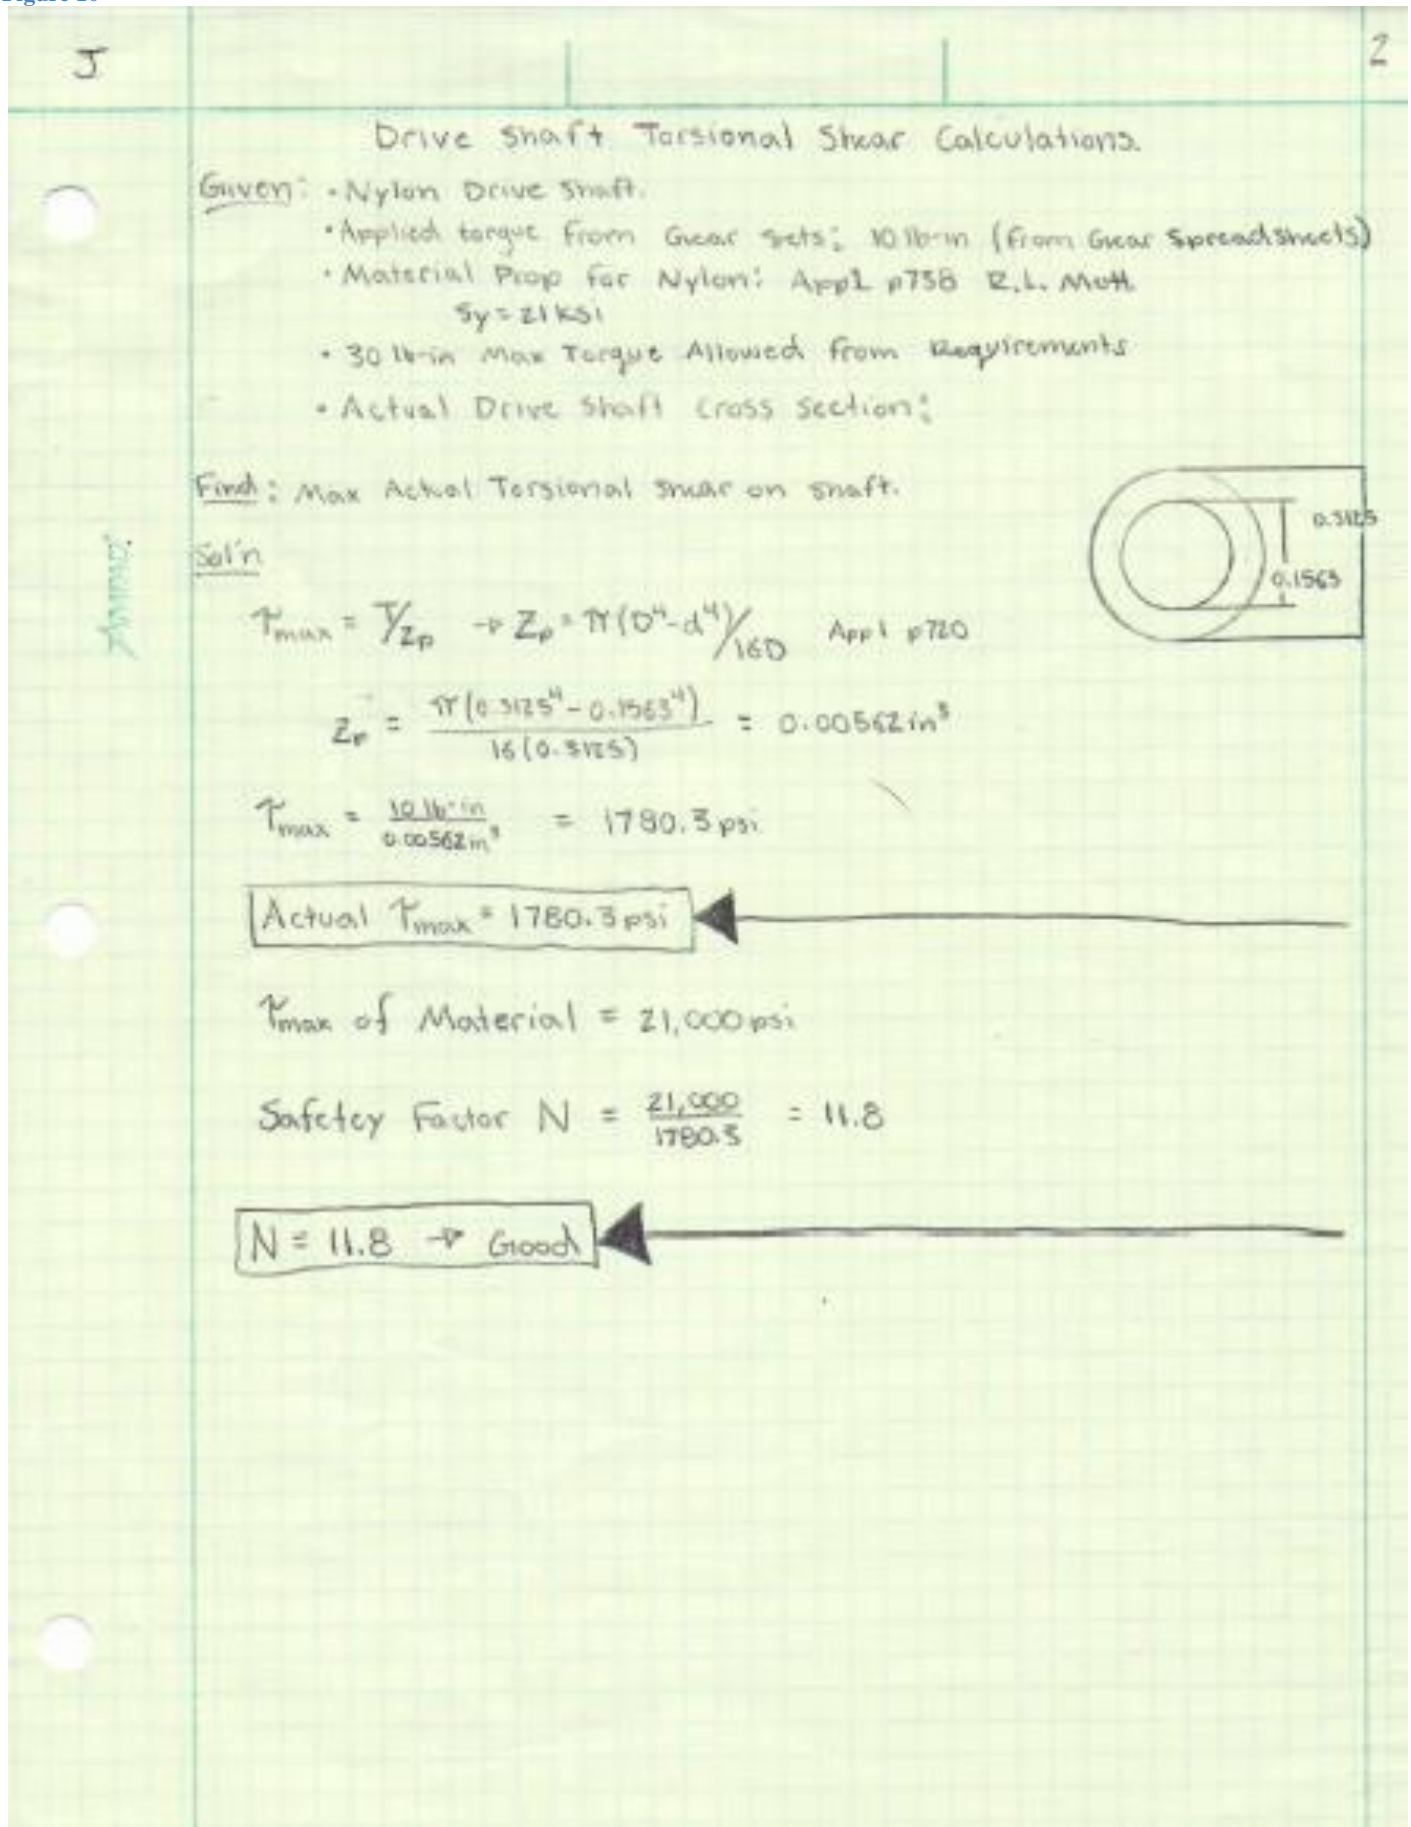 J
2
Drive Shaft Torsional Shear Calculations.
Given: • Nylon Drive Shaft.
• Applied torque From Gear Sets: 10 lb-in (From Gear Spreadsheets)
• Material Prop for Nylon: App1 p738 R.L. Mott
Sy = 21 KSI
• 30 lb-in Max Torque Allowed From Requirements
• Actual Drive Shaft Cross Section:
Find: Max Actual Torsional Shear on Shaft.
0.3125
0.1563
Sol'n
τmax = T/Zp → Zp = π(D⁴-d⁴)/16D App1 p720
Zp = π(0.3125⁴ - 0.1563⁴) / 16(0.3125) = 0.00562 in³
τmax = 10 lb-in / 0.00562 in³ = 1780.3 psi
Actual τmax = 1780.3 psi
τmax of Material = 21,000 psi
Safetey Factor N = 21,000 / 1780.3 = 11.8
N = 11.8 → Good